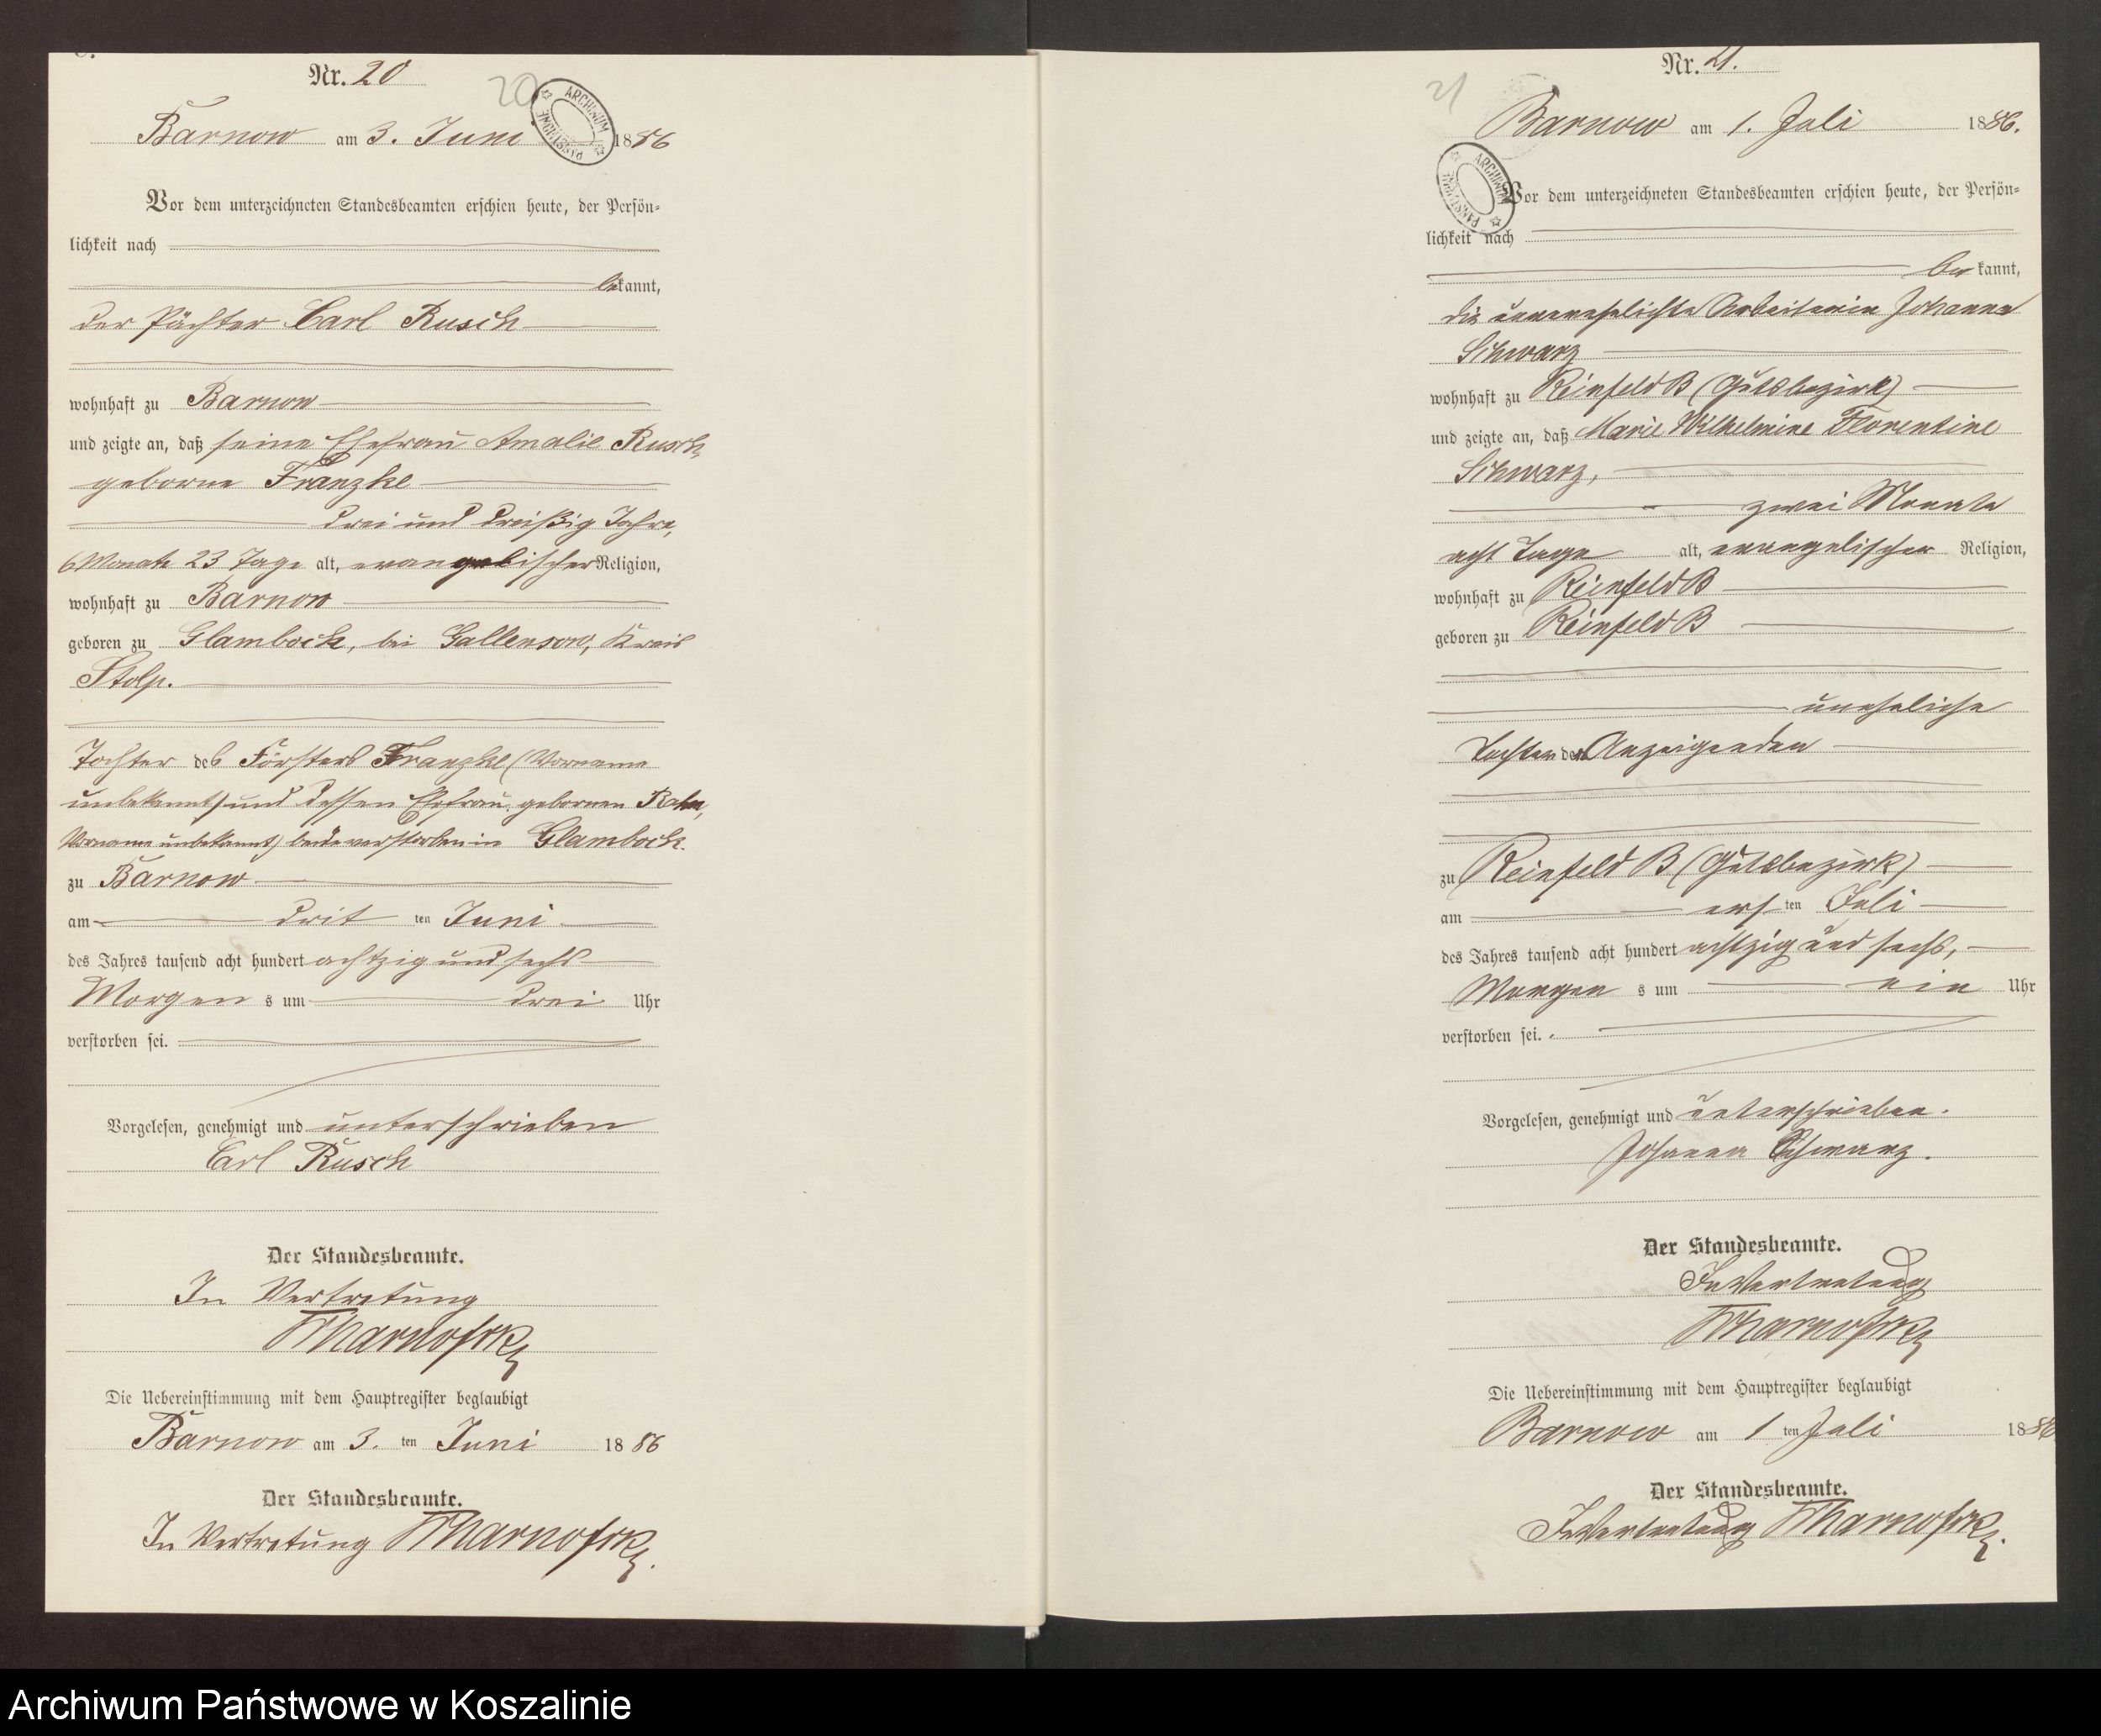 Nr. 20
20
ARCHIWUM PAŃSTWOWE
Barnow am 3. Juni 1886
Vor dem unterzeichneten Standesbeamten erschien heute, der Persön-
lichkeit nach
bekannt,
der Pächter Carl Rusch
wohnhaft zu Barnow
und zeigte an, daß seine Ehefrau Amalie Rusch,
geborne Franzke
drei und dreißig Jahre,
6 Monate 23 Tage alt, evangelischer Religion,
wohnhaft zu Barnow
geboren zu Glambock, bei Gallensow, Kreis
Stolp.
Tochter des Försters Franzke (Vorname
unbekannt) und dessen Ehefrau, gebornen
Vorname unbekannt) beide verstorben in Glambock.
zu Barnow
am drit ten Juni
des Jahres tausend acht hundert achtzig und sechs
Morgen s um drei Uhr
verstorben sei.
Vorgelesen, genehmigt und unterschrieben
Carl Rusch
Der Standesbeamte.
In Vertretung
Die Uebereinstimmung mit dem Hauptregister beglaubigt
Barnow am 3. ten Juni 1886
Der Standesbeamte.
In Vertretung
Nr. 21.
21
Barnow am 1. Juli 1886.
ARCHIWUM PAŃSTWOWE
Vor dem unterzeichneten Standesbeamten erschien heute, der Persön-
lichkeit nach
bekannt,
die unverehelichte Arbeiterin Johanna
Schwarz
wohnhaft zu Reinfeld B (Gutsbezirk)
und zeigte an, daß Marie Wilhelmine Florentine
Schwarz,
zwei Monate
acht Tage alt, evangelischer Religion,
wohnhaft zu Reinfeld B
geboren zu Reinfeld B
uneheliche
Tochter der Anzeigenden
zu Reinfeld B (Gutsbezirk)
am ers ten Juli
des Jahres tausend acht hundert achtzig und sechs,
Morgen s um ein Uhr
verstorben sei.
Vorgelesen, genehmigt und unterschrieben.
Johanna Schwarz.
Der Standesbeamte.
In Vertretung
Die Uebereinstimmung mit dem Hauptregister beglaubigt
Barnow am 1 ten Juli 1886
Der Standesbeamte.
In Vertretung
Archiwum Państwowe w Koszalinie